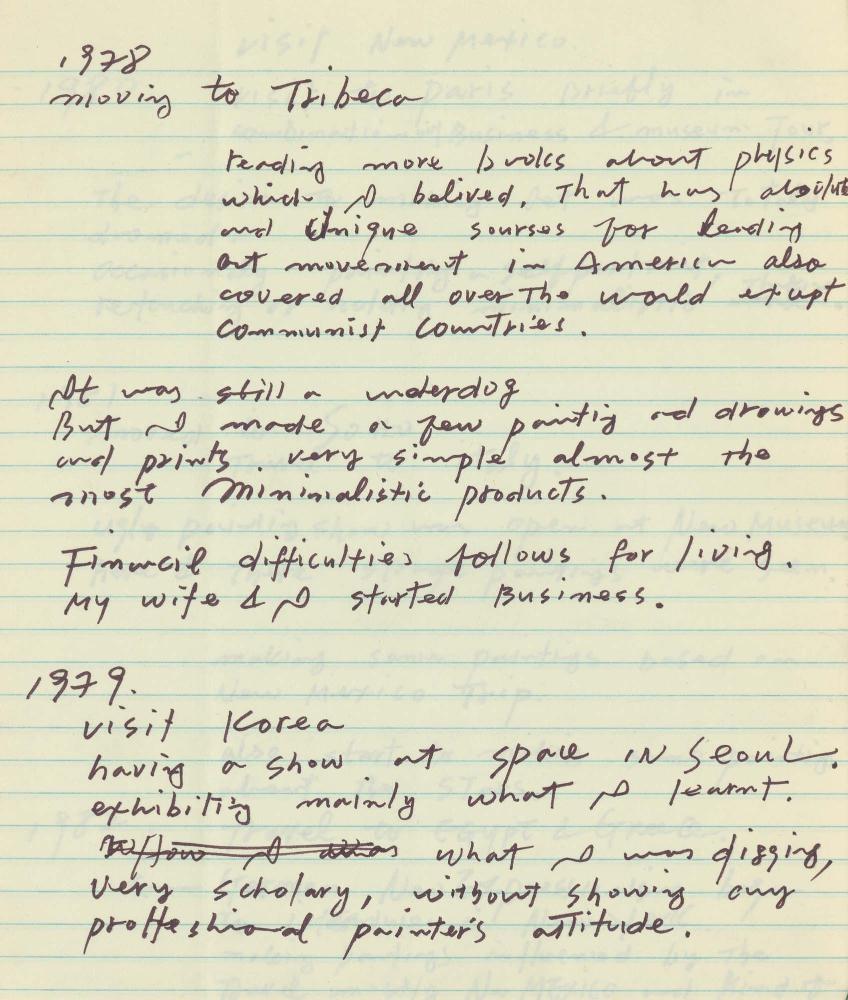 1978
moving to Tribeca
reading more books about physics
which I belived, That has absolute
and Unique sourses for leading
art movement in America also
covered all over The world exept
communist countries.
It was still a underdog
But I made a few paintig ad drowings
and prints. very simple almost the
most Minimalistic products.
Financil difficulties follows for living.
My wife & I started Business.
1979.
visit Korea
having a show at space IN Seoul.
exhibiting mainly what I learnt.
what I was digging,
very scholary, without showing any
proffeshional painter's attitude.